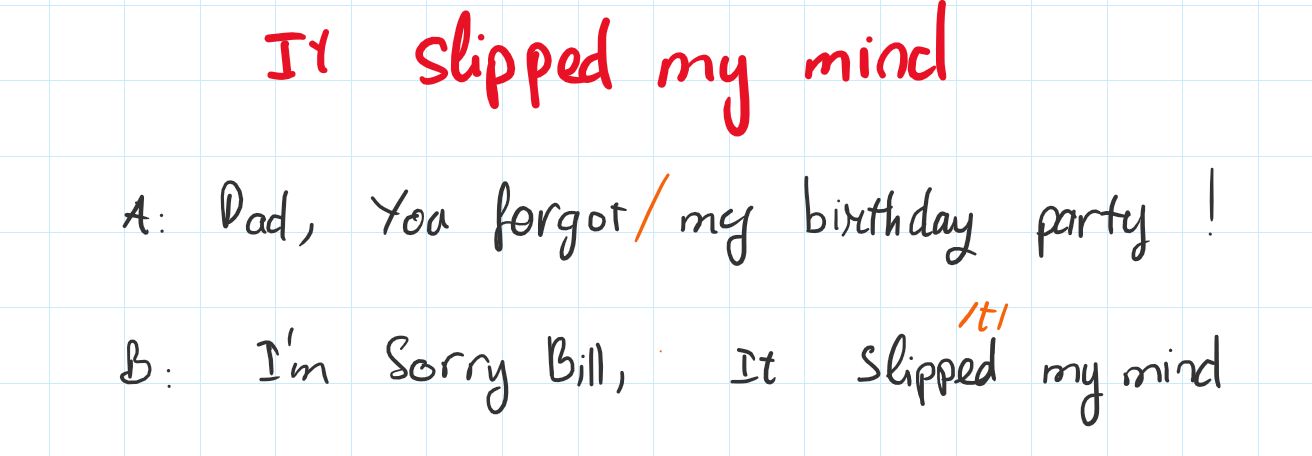 It slipped my mind
A: Dad, You forgot/ my birthday party !
/t/
B: I'm Sorry Bill, It slipped my mind